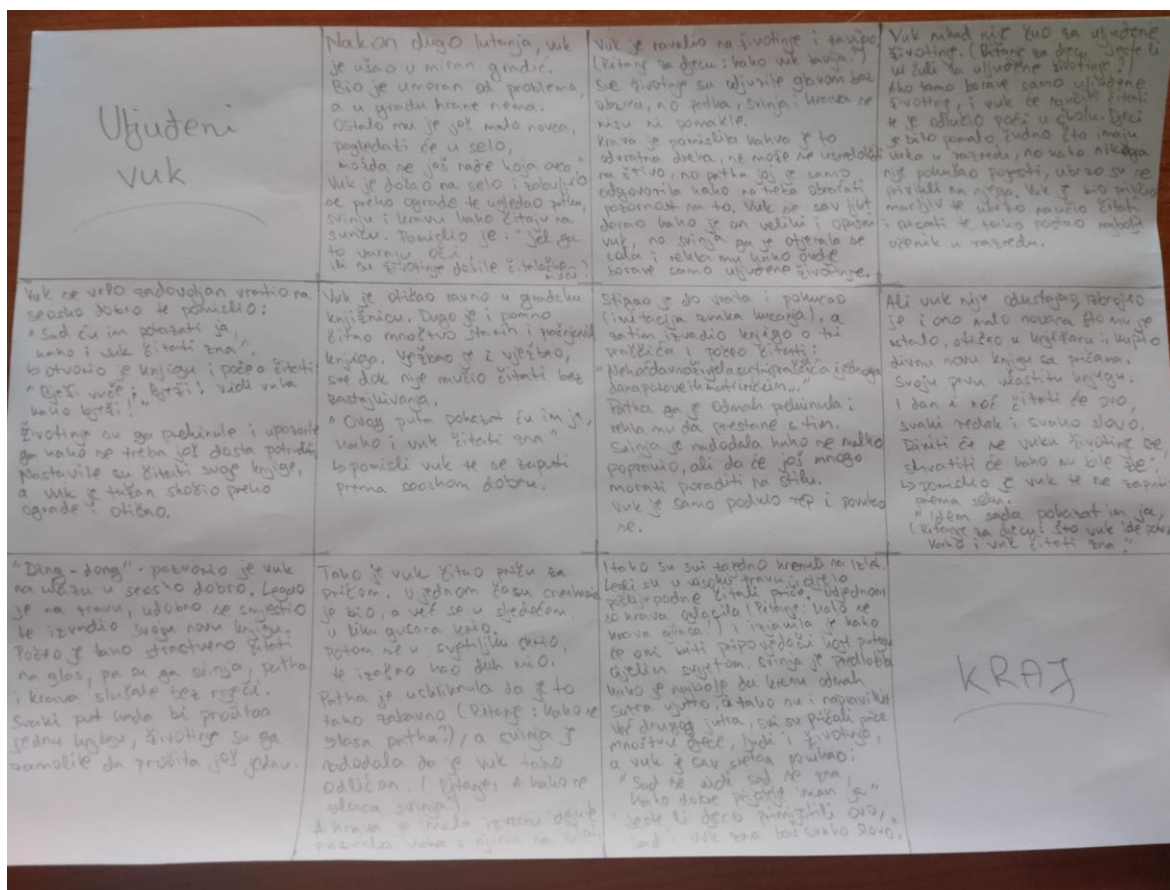 Uljuđeni
vuk
Nakon dugo lutanja, vuk
je ušao u miran gradić.
Bio je umoran od problema,
a u gradu hrane nema.
Ostalo mu je još malo novca,
pogledati će u selo,
možda se još nađe koja ovca."
Vuk je došao na selo i zabuljio
se preko ograde te ugledao patku,
svinju i kravu kako čitaju na
suncu. Pomislio je: "Jel ga
to varaju oči,
ili su životinje dobile čitalačke moći?
Vuk je navalio na životinje i zavijao
(Pitanje za djecu: kako vuk zavija?)
Sve životinje su odjurile glavom bez
obzira, no patka, svinja i krava se
nisu ni pomakle.
Krava je pomislila kakva je to
odvratna dreka, ne može se usredotočiti
na štivo, no patka joj je samo
odgovorila kako ne treba obraćati
pozornost na to. Vuk se sav ljut
derao kako je on veliki i opasni
vuk, no svinja ga je otjerala sa
sela i rekla mu kako ovdje
borave samo uljuđene životinje.
Vuk nikad nije čuo za uljuđene
životinje. (Pitanje za djecu: Jeste li
vi čuli za uljuđene životinje?)
Ako tamo borave samo uljuđene
životinje, i vuk će naučiti čitati
te je odlučio poći u školu. Djeci
je bilo pomalo čudno što imaju
vuka u razredu, no kako nikoga
nije pokušao pojesti, ubrzo su se
privikli na njega. Vuk je bio
marljiv te ubrzo naučio čitati
i pisati te tako postao najbolji
učenik u razredu.
Vuk se vrlo zadovoljan vratio na
seosko dobro te pomislio:
"Sad ću im pokazati ja,
kako i vuk čitati zna".
↳ otvorio je knjigu i počeo čitati
"Bježi vuče, bježi! vidi vuka
kako bježi!"
životinje su ga prekinule i upozorile
ga kako se treba još dosta potruditi
Nastavile su čitati svoje knjige,
a vuk je tužan skočio preko
ograde i otišao.
Vuk je otišao ravno u gradsku
knjižnicu. Dugo je i pomno
čitao mnoštvo starih i prašnjavih
knjiga. Vježbao je i vježbao,
sve dok nije naučio čitati bez
zastajkivanja.
"Ovog puta pokazat ću im ja,
kako i vuk čitati zna"
↳ pomisli vuk te se zaputi
prema seoskom dobru.
Stigao je do vrata i pokucao
(imitacija zvuka kucanja), a
zatim izvadio knjigu o tri
praščića i počeo čitati:
"Nekoć davno živjela su tri praščića i jednoga
dana pozove ih mutrinkim..."
Patka ga je odmah prekinula i
rekla mu da prestane s tim.
Svinja je nadodala kako se malko
popravio, ali da će još mnogo
morati poraditi na stilu.
Vuk je samo podvio rep i povukao
se.
Ali vuk nije odustajao, izbrojio
je i ono malo novaca što mu je
ostalo, otišao u knjižaru i kupio
divnu novu knjigu sa pričama.
Svoju prvu vlastitu knjigu.
I dan i noć čitati će ovo,
svaki redak i svako slovo.
Diviti će se vuku životinje sve,
shvatiti će kako su bile zle.
↳ pomislio je vuk te se zaputi
prema selu.
"Idem sada pokazat im ja,
(Pitanje za djecu: što vuk ide
kako i vuk čitati zna."
"Ding-dong" - pozvonio je vuk
na ulazu u seosko dobro. Legao
je na travu, udobno se smjestio
te izvadio svoju novu knjigu.
Počeo je tako strastveno čitati
na glas, pa su ga svinja, patka
i krava slušale bez riječi.
Svaki put kada bi pročitao
jednu knjigu, životinje su ga
zamolile da pročita još jednu.
Tako je vuk čitao priču za
pričom. U jednom času
je bio, a već se u sljedećem,
u liku gusara krio.
potom se u svjetiljku skrio,
te izašao kao duh mio.
Patka je uskliknula da je to
tako zabavno (Pitanje: kako se
glasa patka?), a svinja je
nadodala da je vuk tako
odličan. (Pitanje: A kako se
glasa svinja?)
A krava je imala
pozvala vuka s njima na izlet.
I tako su svi zajedno krenuli na izlet.
Legli su u visoku travu i cijelo
poslijepodne čitali priče. Odjednom
se krava oglasila (Pitanje: Kako se
krava glasa?) i izjavila je kako
će oni biti pripovjedači koji putuju
cijelim svijetom. Svinja je predložila
kako je najbolje da krenu odmah
sutra ujutro, a tako su i napravili.
Već drugog jutra, svi su pričali priče
mnoštvu djece, ljudi i životinja,
a vuk je sav sretan
"Sad se vidi sad se zna,
kako dobre prijatelje imam ja"
Jeste li djeco primijetili ovo,
sad i vuk zna baš svako slovo.
KRAJ